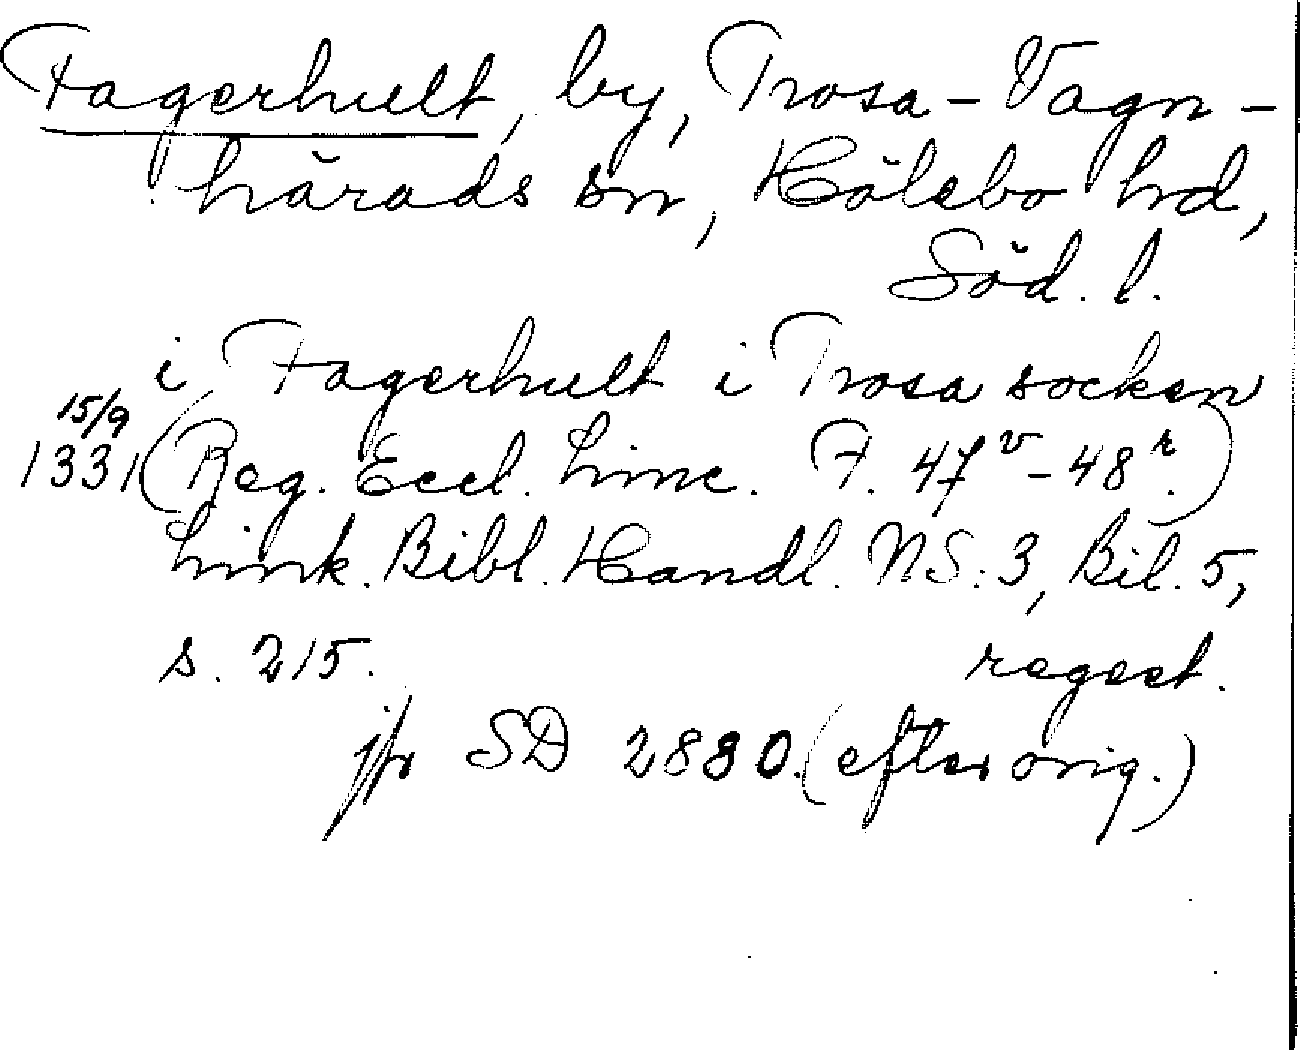 Fagerhult, by, Trosa-Vagn-
härads sn, Hölebo hd,
Söd. l.
i Fagerhult i Trosa socken
15/9
1331 (Reg. Eccl. Linc. F. 47v-48r.)
Link. Bibl. Handl. NS. 3, Bil. 5,
s. 215. regest.
jfr SD 2880. (efter orig.)